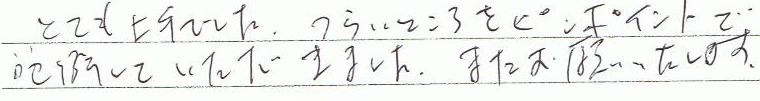 とても上手でした。つらいところをピンポイントで
治療していただきました。またお願いいたします。